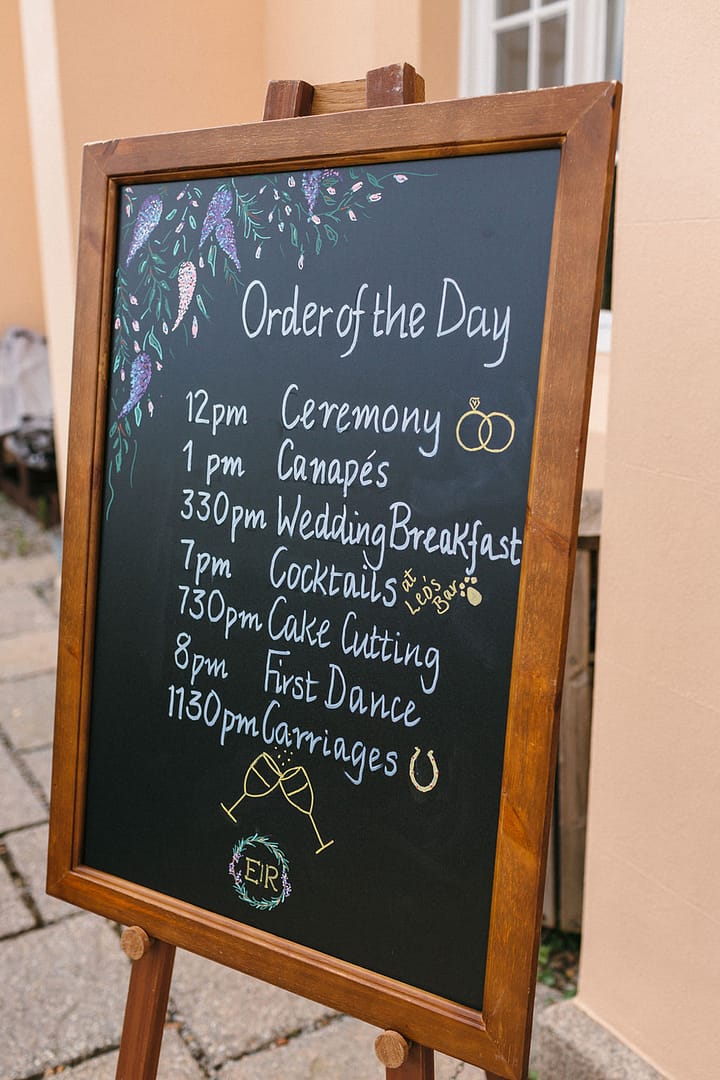 Order of the Day
12pm Ceremony
1pm Canapés
330pm Wedding Breakfast
7pm Cocktails at Leo's Bar
730pm Cake Cutting
8pm First Dance
1130pm Carriages
E|R